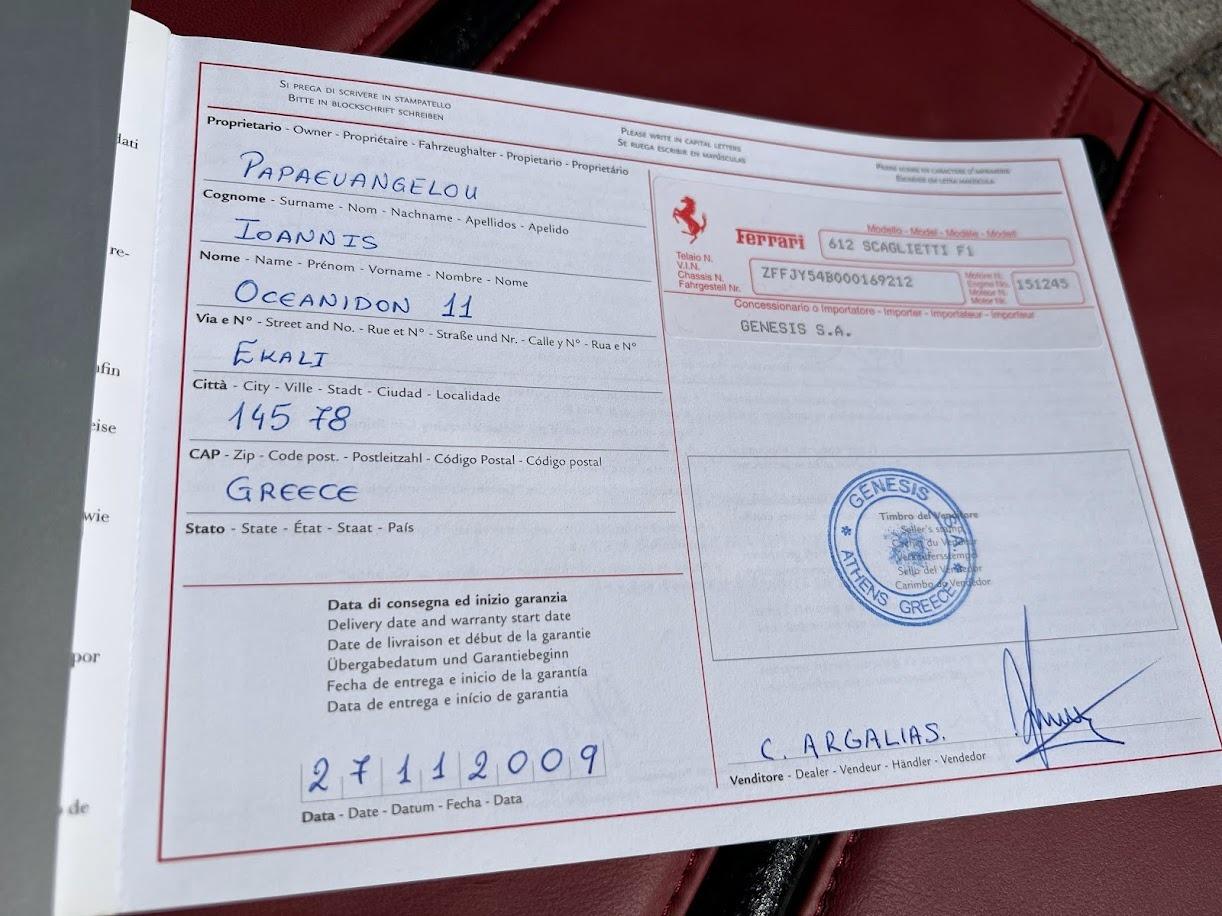 dati
re-
afin
eise
wie
por
de
SI PREGA DI SCRIVERE IN STAMPATELLO
BITTE IN BLOCKSCHRIFT SCHREIBEN
PLEASE WRITE IN CAPITAL LETTERS
SE RUEGA ESCRIBIR EN MAYÚSCULAS
Proprietario - Owner - Propriétaire - Fahrzeughalter - Propietario - Proprietário
PAPAEVANGELOU
Cognome - Surname - Nom - Nachname - Apellidos - Apelido
IOANNIS
Nome - Name - Prénom - Vorname - Nombre - Nome
OCEANIDON 11
Via e N° - Street and No. - Rue et N° - Straße und Nr. - Calle y N° - Rua e N°
EKALI
Città - City - Ville - Stadt - Ciudad - Localidade
145 78
CAP - Zip - Code post. - Postleitzahl - Código Postal - Código postal
GREECE
Stato - State - État - Staat - País
Data di consegna ed inizio garanzia
Delivery date and warranty start date
Date de livraison et début de la garantie
Übergabedatum und Garantiebeginn
Fecha de entrega e inicio de la garantía
Data de entrega e início de garantia
27112009
Data - Date - Datum - Fecha - Data
Ferrari
Modello - Model - Modèle - Modell
612 SCAGLIETTI F1
Telaio N.
V.I.N.
Chassis N.
Fahrgestell Nr.
ZFFJY54B000169212
Motore N.
Engine No.
Moteur N.
Motor Nr.
151245
Concessionario o Importatore - Importer - Importateur - Importeur
GENESIS S.A.
GENESIS S.A.
ATHENS GREECE
Timbro del Venditore
Seller's stamp
Cachet du Vendeur
Verkäuferstempel
Sello del Vendedor
Carimbo do Vendedor
C. ARGALIAS.
Venditore - Dealer - Vendeur - Händler - Vendedor